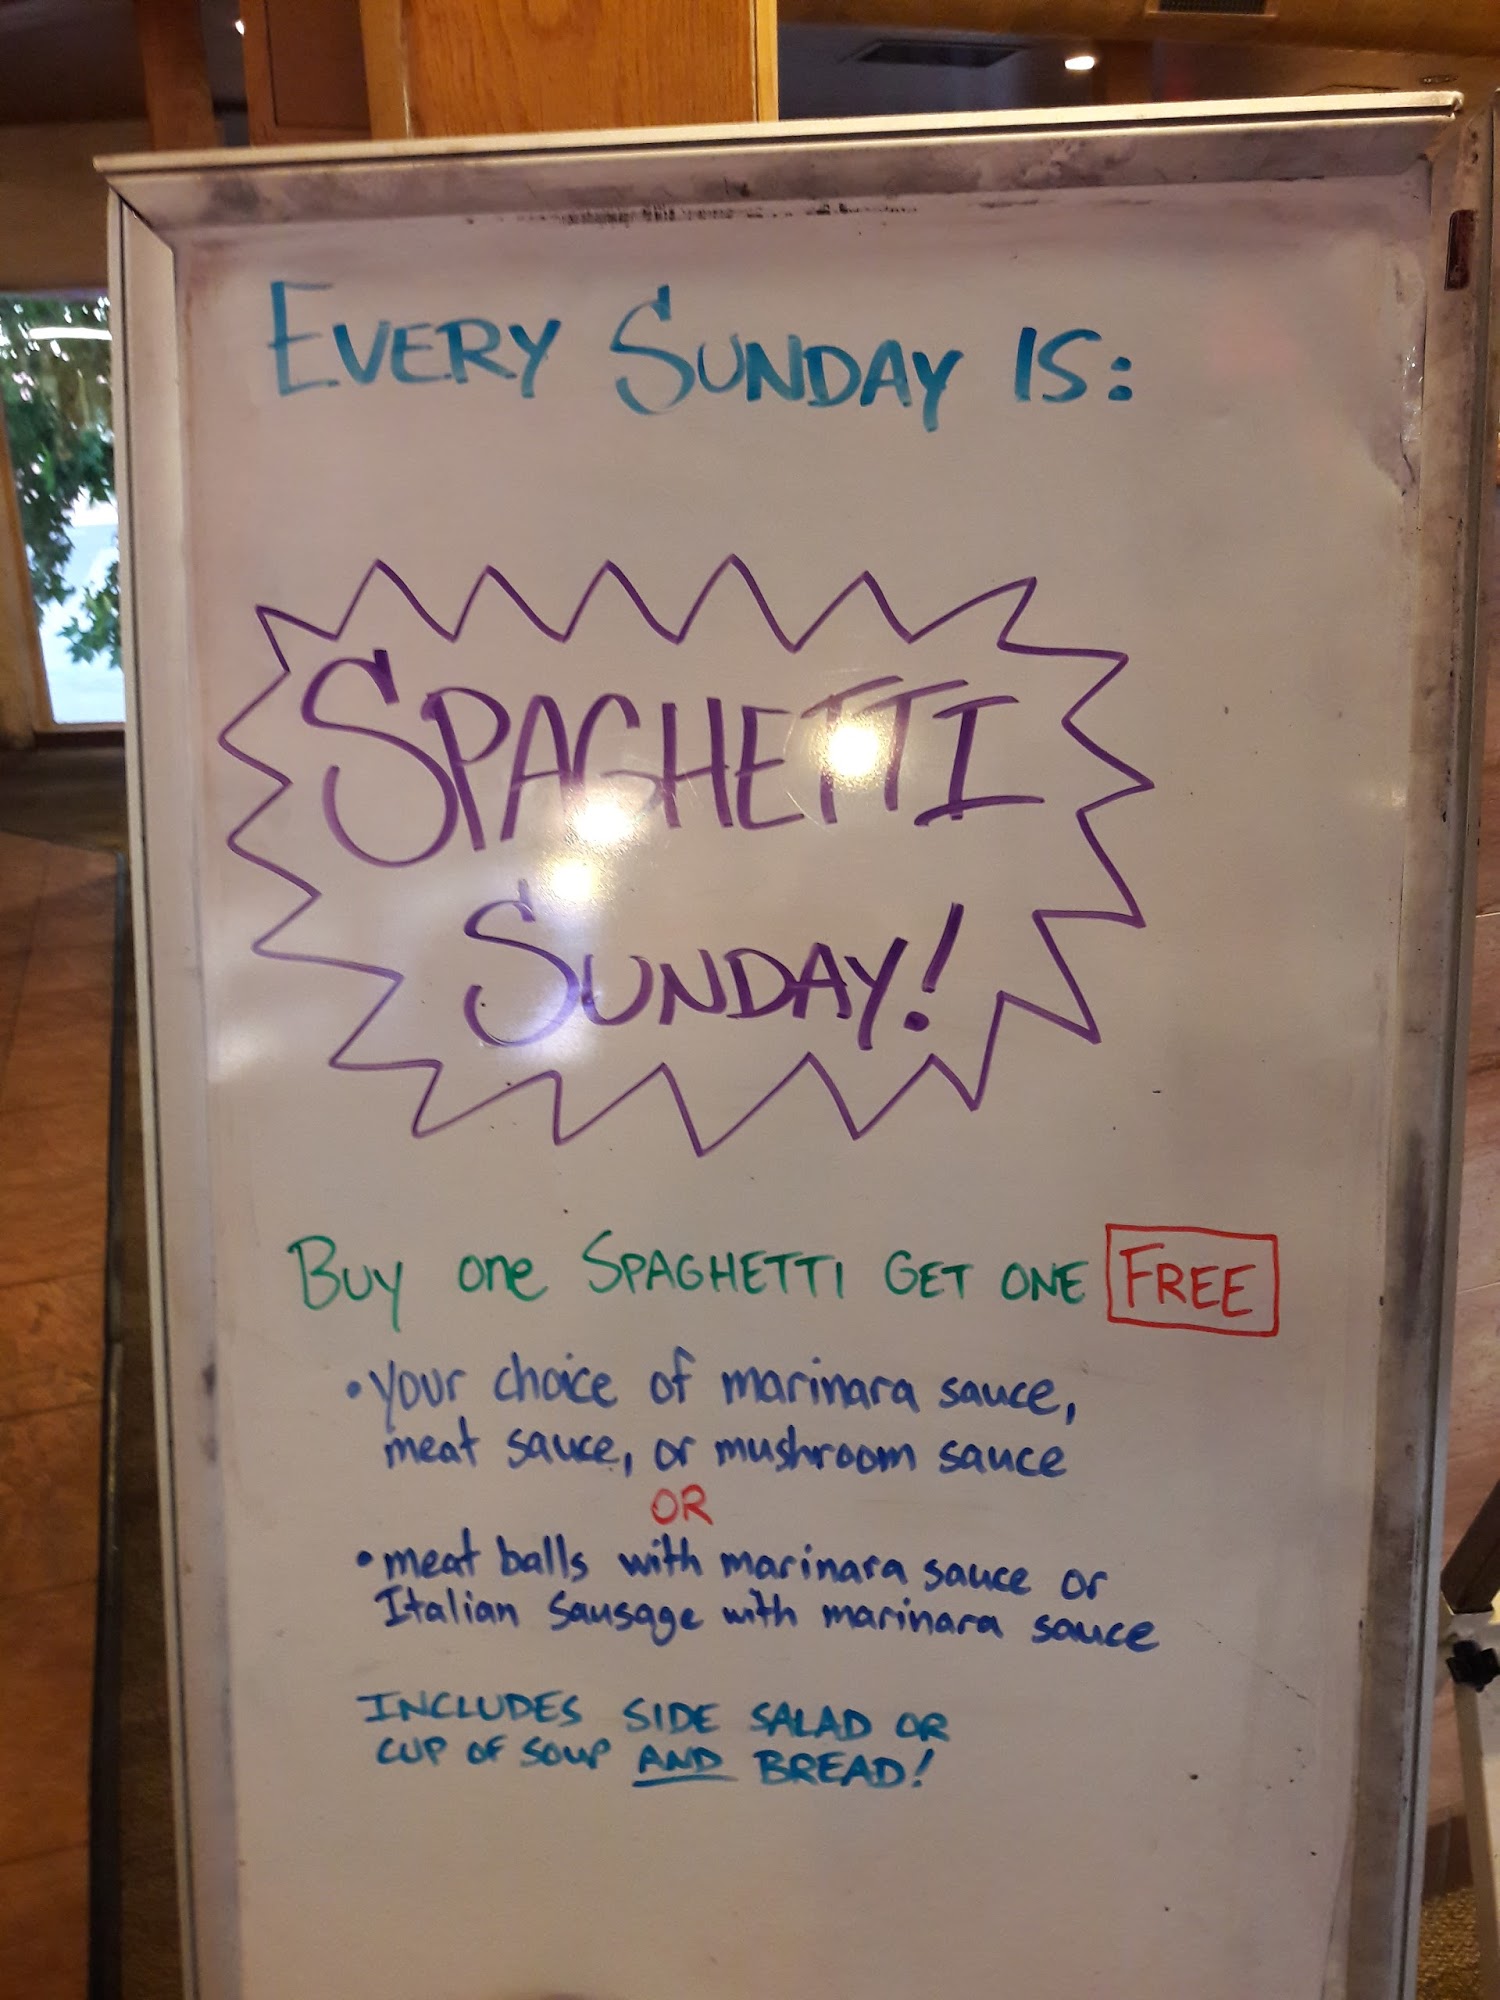 EVERY SUNDAY IS:
SPAGHETTI
SUNDAY!
Buy one SPAGHETTI GET ONE FREE
• your choice of marinara sauce,
meat sauce, or mushroom sauce
OR
• meat balls with marinara sauce or
Italian Sausage with marinara sauce
INCLUDES SIDE SALAD OR
CUP OF SOUP AND BREAD!